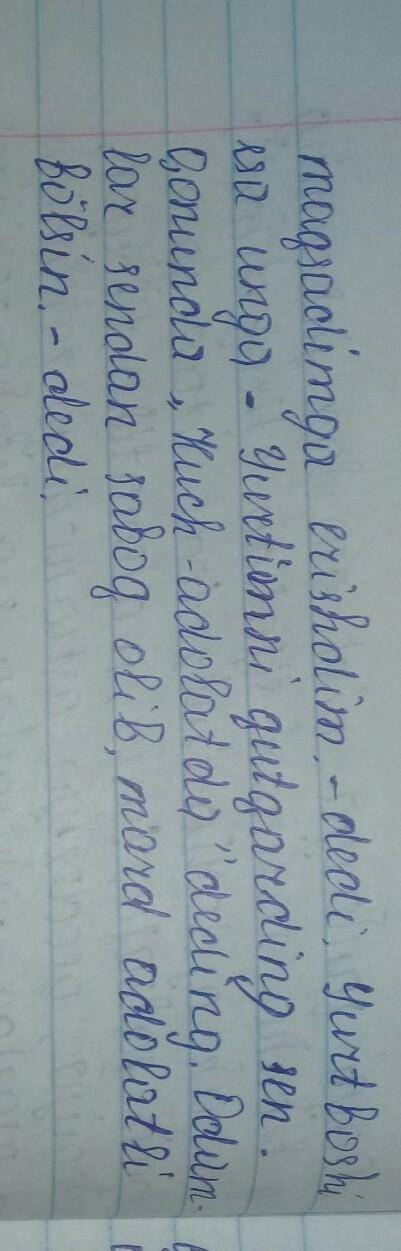 maqsadimga erishdim, - dedi. Yurt boshi
esa unga - Yurtimni qutqarding sen.
Qonunda „Kuch-adolatda" deding. Odam-
lar sendan saboq olib, mard adolatli
bo'lsin. - dedi.